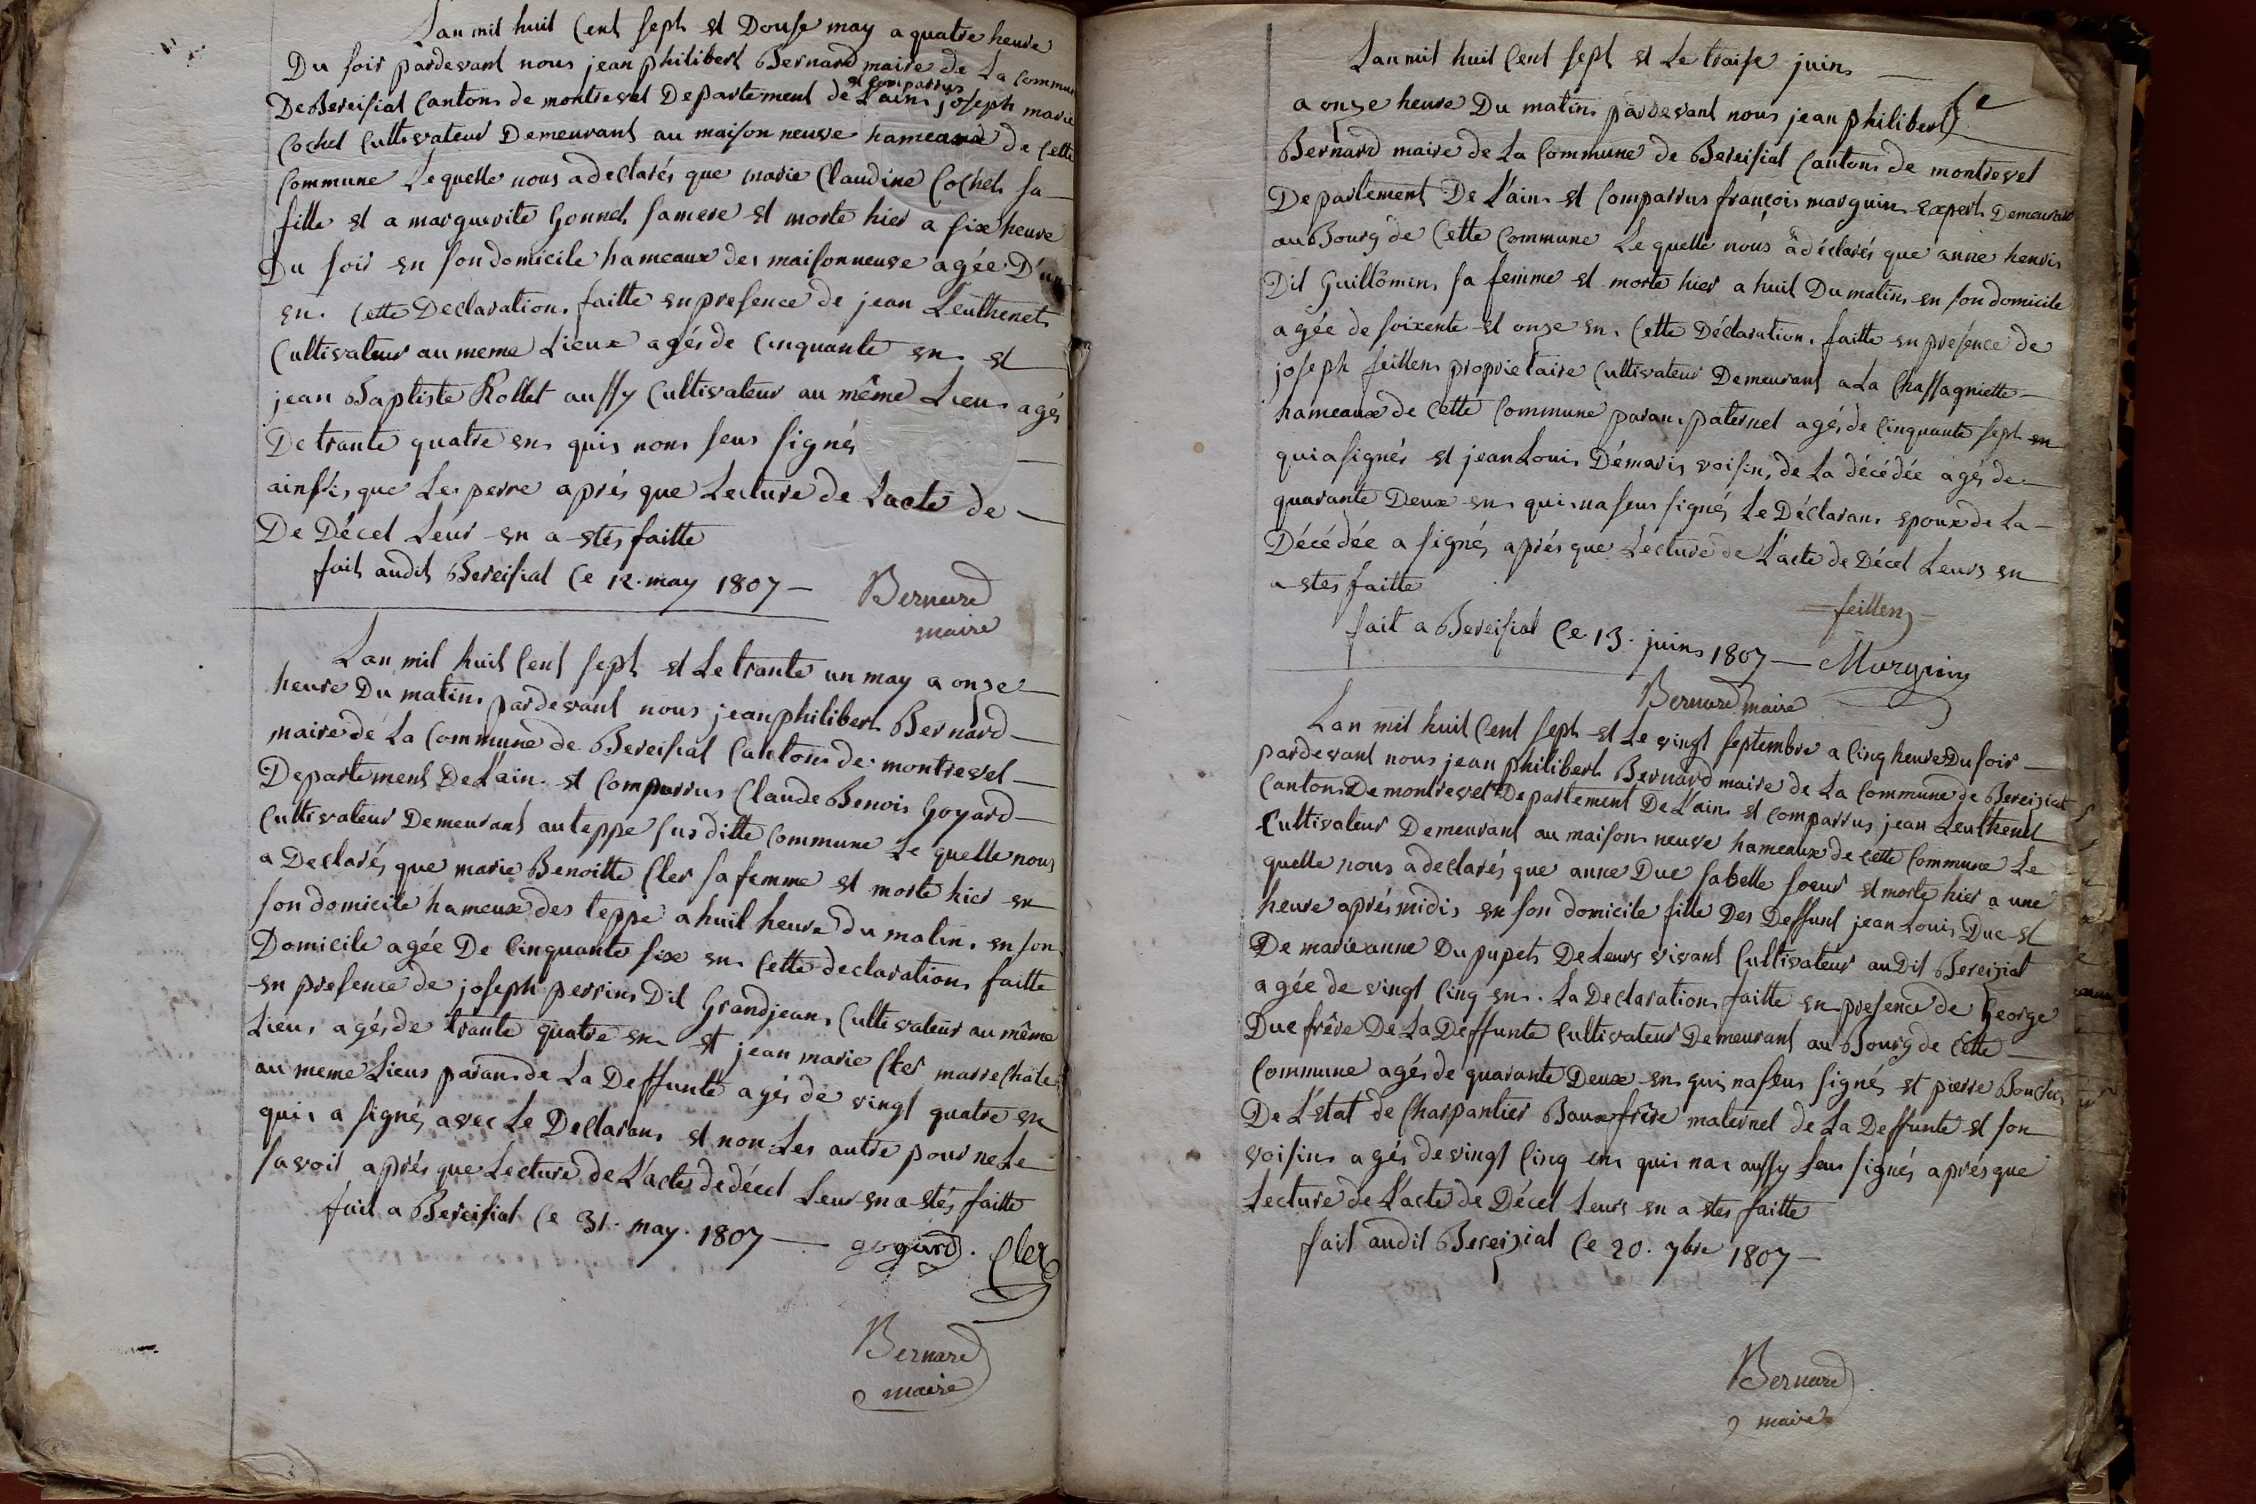 Lan mil huit Cent sept et Douse may a quatre heure
Du soir pardevant nous jean philibert Bernard maire de La Commun
De Bereisiat Cantons de montrevel Departement de L'ain et comparrus joseph marie
Cochet Cultivateur Demeurant au maison neuve hameaux de Cette
Commune Le quelle nous a declarés que marie Claudine Cochet sa
fille et a marguerite Gonnet samere et morte hier a six heure
Du soir en son domicile hameaux des maisonneuve agée D'un
en. Cette Declaration. faitte en presence de jean Leuthenet
Cultivateur au meme Lieux agés de Cinquante en et
jean Baptiste Rollet aussy Cultivateur au même Lieu agés
De trante quatre en quis nons seus signés
ainssis que Le perre aprés que Lecture de Lacte de
De Décel Leur en a etés faitte
fait audit Bereisiat Ce 12. may 1807
Bernard
maire
Lan mil huit Cent sept et Le trante un may a onze
heure Du matin. pardevant nous jean philibert Bernard
maire de La Commune de Bereisiat Cantons de montrevel
Departement De L'ain. et Comparrus Claude Benois Goyard
Cultivateur Demeurant au teppe sus ditte Commune Le quelle nous
a Declarés que marie Benoitte Cler sa femme et morte hier en
son domicile hameux des teppe a huit heure du matin. en son
Domicile agée De Cinquante six en. Cette declarations faitte
en presence de joseph perrins Dit Grandjean. Cultivateur au même
Lieu. agés de trante quatre en et jean marie Cler marrechale
au meme Lieus parans de La Deffunte agés de vingt quatre en
quis a signés avec Le Declarans et non Les autre pour ne Le
savoir aprés que Lecture de L'acte de décel Leur en a etés faitte
fait a Bereisiat Ce 31. may. 1807 goyard. Cler
Bernard
maire
Lan mil huit Cent sept et Le traise juins
a onze heure Du matins pardevant nous jean philibert
Bernard maire de La Commune de Bereisiat Cantons de montrevel
Departement De L'ain. et Comparrus françois marguin expert Demeurant
au Bourg de Cette Commune Le quelle nous a déclarés que anne henris
Dit Guillomin. sa femme et morte hier a huit Du matin. en son domicile
agée de soixente et onze en. Cette Déclaration. faitte en présence de
joseph feillens proprietaire Cultivateur Demeurant a La Chassagniette
hameaux de Cette Commune paran. paternel agés de Cinquante sept en
qui a signés et jean Louis Démaris voisin. de La décédée agés de
quarante Deux en. quis na seus signés Le Déclarans epoux de La
Décédée a signés aprés que Lecture de L'acte de Décel Leurs en
a etes faitte
feillens
fait a Bereisiat Ce 13. juins 1807 Marguin
Bernard maire
Lan mil huit Cent sept et Le vingt septembre a Cinq heure Du soir
pardevant nous jean philibert Bernard maire de La Commune de Bereiziat
Cantons De montrevel Departement De L'ain et comparrus jean Leuthenet
Cultivateur Demeurant au maisons neuve hameaux de Cette Commune Le
quelle nous a declarés que anne Duc sabelle soeur et morte hier a une
heure aprés midis en son domicile fille Des Deffunt jean Louis Duc et
De marie anne Dupupet De Leurs vivant Cultivateur au Dit Bereiziat
agée de vingt Cinq en. La Declarations faitte en presence de George
Duc frêre De La Deffunte Cultivateur Demeurant au Bourg de Cette
Commune agés de quarante Deux en quis na seus signés et pierre
De L'etat de Charpantier Baux frêre maternel de La Deffunte et son
voisins agés de vingt Cinq en quis nas aussy seus signés aprés que
Lecture de L'acte de Décel Leurs en a etes faitte
fait audit Bereiziat Ce 20. 7bre 1807
Bernard
maire